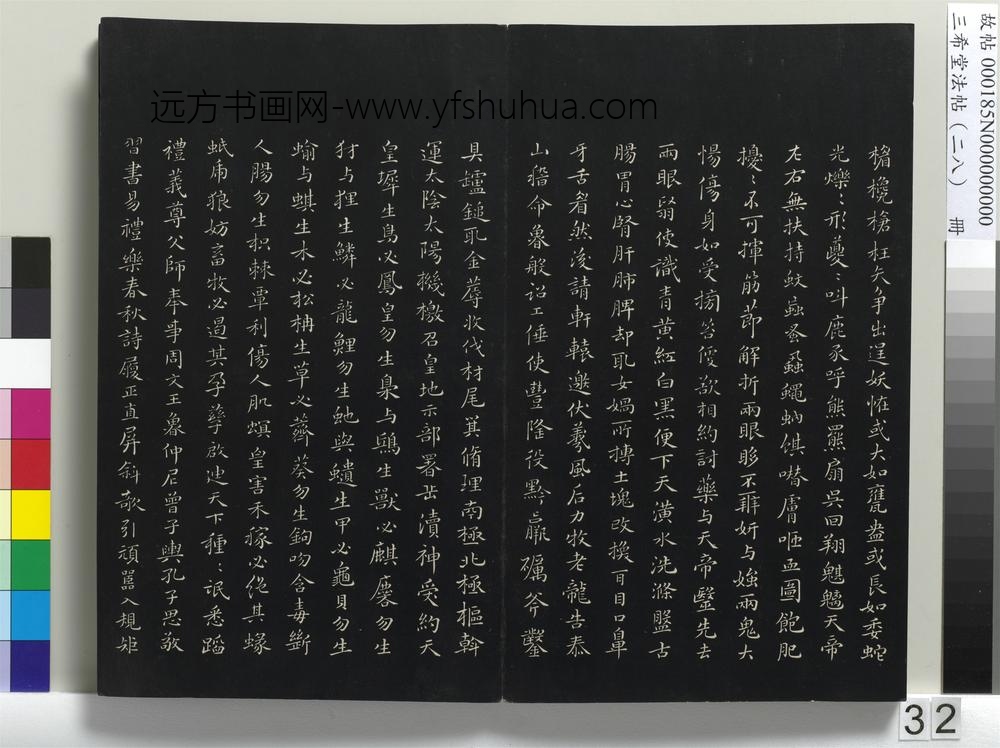 远方书画网-www.yfshuhua.com
故帖 000185N000000000
三希堂法帖(二八) 冊
橹欃槍枉矢爭出逞妖恠或大如甕盎或長如委蛇
光爍〻形躨〻叫鹿豕呼熊羆扇吳回翔魃魑天帝
左右無扶持蚊䖟蚤蝨蠅蚋倛噆膚咂血圖飽肥
擾〻不可揮筋節解折兩眼眵不辨妍与媸兩鬼大
惕傷身如受搒笞便欲相約討藥与天帝毉先去
兩眼翳使識青黃紅白黑便下天潢水洗滌盤古
腸胃心腎肝肺脾却取女媧所摶土塊改換百目口鼻
牙舌眉然後請軒轅邀伏羲風后力牧老龍吉泰
山稽命魯般詔工倕使豐隆役黔羸礪斧鑿
具罏鎚取金蓐收伐材尾箕脩理南極北極樞斡
運太陰太陽機檄召皇地示部署岳瀆神受約天
皇墀生鳥必鳳皇勿生梟与鴟生獸必麒麐勿生
豺与狸生鱗必龍鯉勿生虵與䗽生甲必龜貝勿生
蝓与蜞生木必松柟生草必薺葵勿生鉤吻含毒斷
人腸勿生枳棘覃利傷人肌螟皇害禾稼必絕其蝝
蚳虎狼妨畜牧必遏其孕孳啟迪天下種〻氓悉蹈
禮義尊父師奉事周文王魯仲尼曾子輿孔子思敬
習書易禮樂春秋詩履正直屏斜欹引頑嚚入規矩
32